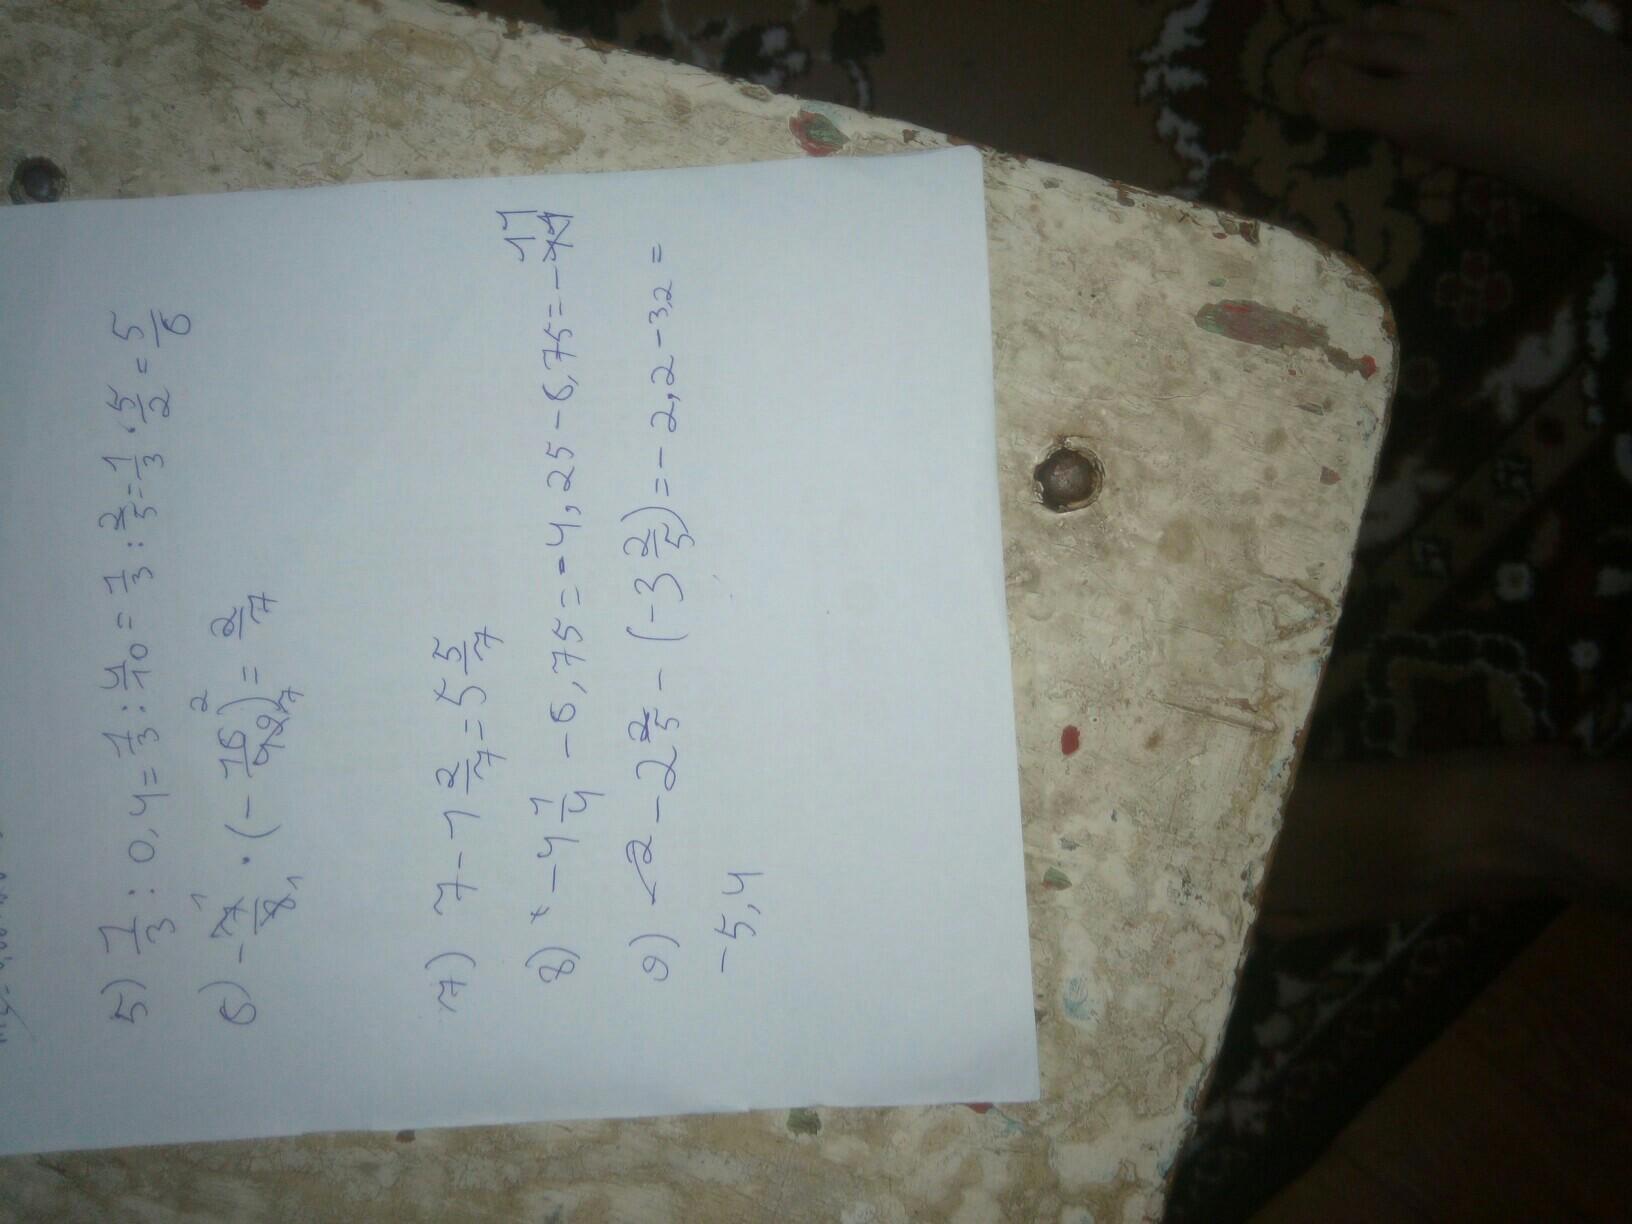 5) 1/3 : 0,4 = 1/3 : 4/10 = 1/3 : 2/5 = 1/3 · 5/2 = 5/6
6) -7/8 · (-16/49) = 2/7
7) 7 - 1 2/7 = 5 5/7
8) -4 1/4 - 6,75 = -4,25 - 6,75 = - 11
9) -2 2/5 - (-3 2/5) = -2,2 - 3,2 =
-5,4